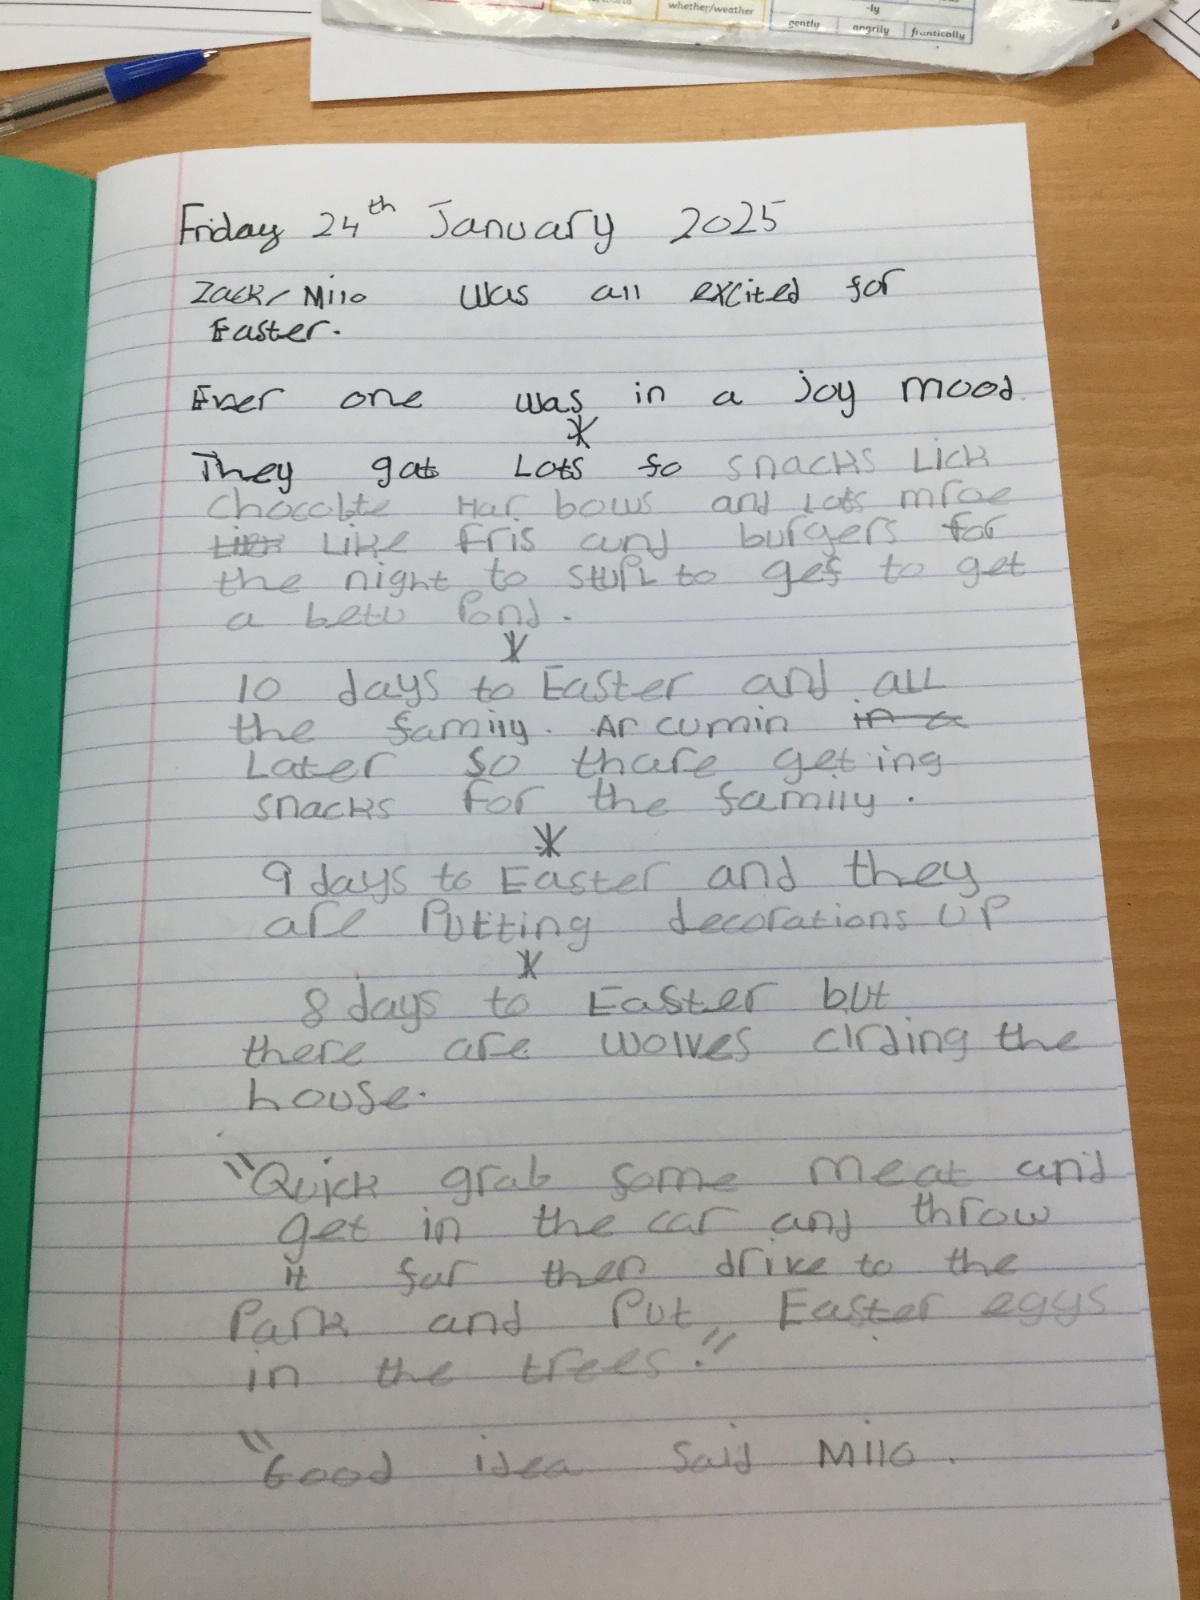 whether/weather
-ly
gently angrily frantically
Friday 24th January 2025
Zack, Milo was all excited for
Easter.
Ever one was in a joy mood.
They gat Lots fo snacks Lick
chocolate Har bows and Lots mroe
Like fris and burgers for
the night to to get to get
a Pond.
10 days to Easter and all
the family. Ar cumin in a
Later so thare geting
snacks for the family.
9 days to Easter and they
are Putting decorations UP
8 days to Easter but
there are wolves cirding the
house.
"Quick grab some meat and
get in the car and throw
it far then drive to the
Park and Put Easter eggs
in the trees."
"Good idea said Milo.